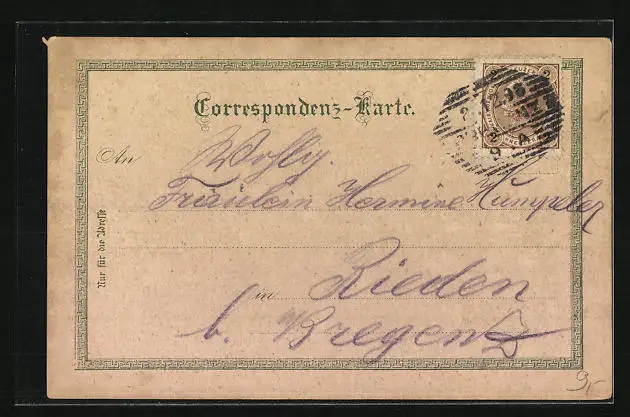 Correspondenz-Karte.
An Wohlg.
Fräulein Hermine Humpeler
in Rieden
b. Bregenz
Nur für die Adresse